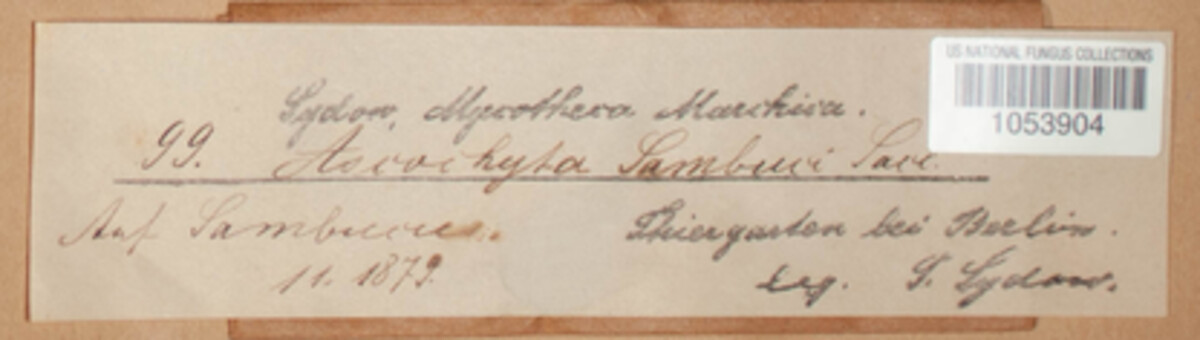 US NATIONAL FUNGUS COLLECTIONS
1053904
Sydow, Mycotheca Marchica.
99. Ascochyta Sambuci Sacc.
Auf Sambucus.
11. 1879.
Thiergarten bei Berlin.
Leg. P. Sydow.